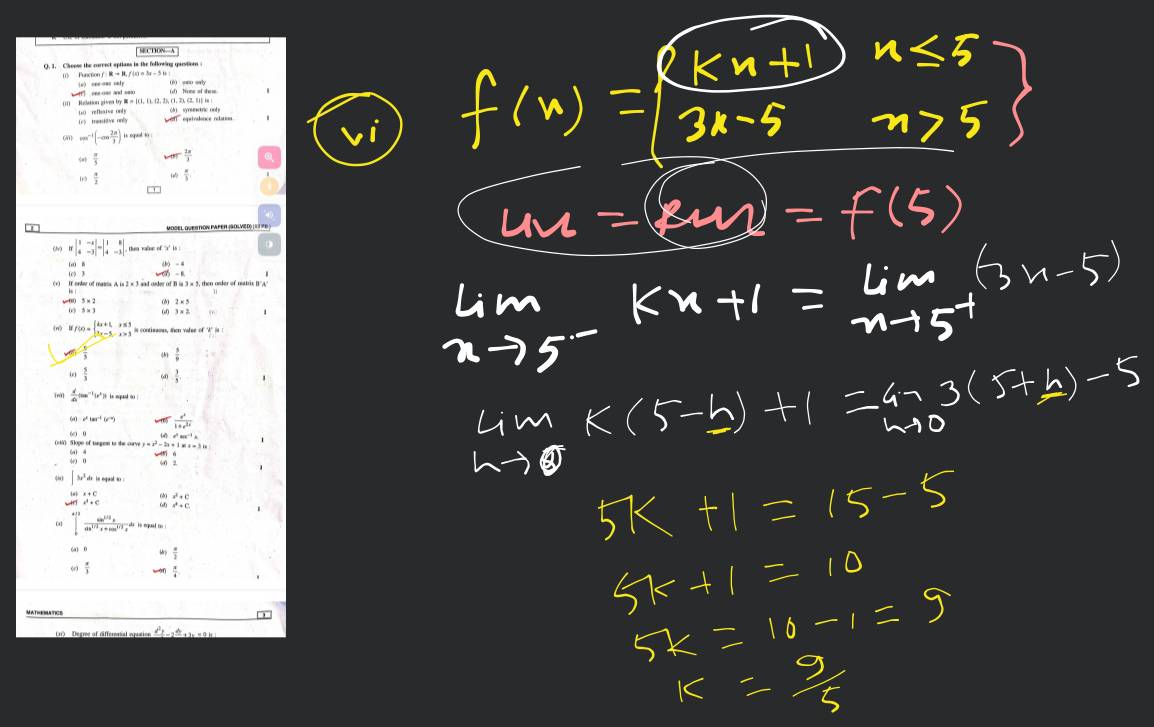 SECTION—A
Q. 1. Choose the correct options in the following questions :
(i) Function f : R → R, f (x) = 3x – 5 is :
(a) one-one only (b) onto only
(c) one-one and onto (d) None of these.
(ii) Relation given by R = {(1, 1), (2, 2), (1, 2), (2, 1)} is :
(a) reflexive only (b) symmetric only
(c) transitive only (d) equivalence relation.
(iii) cos⁻¹(–cos 2π/3) is equal to :
(b) 2π/3
(c) π/2
1
2 MODEL QUESTION PAPER (SOLVED)
(iv) If |1 –x; 4 –3| = |1 8; 4 –3|, then value of 'x' is :
(a) 8 (b) – 4
(c) 3 (d) – 8.
(v) If order of matrix A is 2 × 3 and order of B is 3 × 5, then order of matrix B'A'
is :
(a) 5 × 2 (b) 2 × 5
(c) 5 × 3 (d) 3 × 2.
(vi) If f (x) = {kx + 1, x ≤ 5; 3x – 5, x > 5 is continuous, then value of 'k' is :
(b) 5/9
(c) 5/3 (d) 3/5.
(vii) d/dx (tan⁻¹ (eˣ)) is equal to :
(c) 0
(viii) Slope of tangent to the curve y = x² – 2x + 1 at x = 3 is :
(a) 4 (b) 6
(c) 0 (d) 2.
(ix) ∫ 3x² dx is equal to :
(a) x + C (b) x² + C
(c) x³ + C (d) x⁴ + C.
(a) 0 (b) π/2
(c) π/3 (d) π/4
MATHEMATICS 3
(xi) Degree of differential equation d²y/dx² – 2 dy/dx + 3y = 0 is :
vi
f(n) = { Kn+1 n≤5
3x-5 n>5 }
= f(5)
Lim n→5⁻ Kn+1 = Lim n→5⁺ (3n-5)
Lim h→0 K(5-h)+1 = Lim h→0 3(5+h)-5
5K +1 = 15-5
5K+1 = 10
5K = 10-1 = 9
K = 9/5